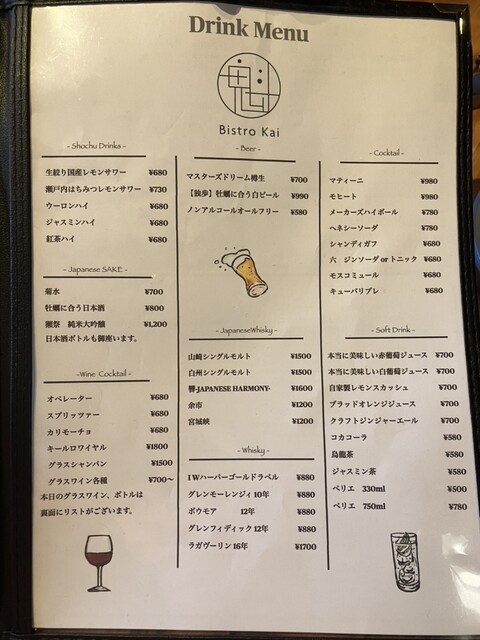 Drink Menu
Bistro Kai
- Shochu Drinks -
生絞り国産レモンサワー ¥680
瀬戸内はちみつレモンサワー ¥730
ウーロンハイ ¥680
ジャスミンハイ ¥680
紅茶ハイ ¥680
- Japanese SAKE -
菊水 ¥700
牡蠣に合う日本酒 ¥800
獺祭 純米大吟醸 ¥1,200
日本酒ボトルも御座います。
-Wine Cocktail -
オペレーター ¥680
スプリッツァー ¥680
カリモーチョ ¥680
キールロワイヤル ¥1800
グラスシャンパン ¥1500
グラスワイン各種 ¥700〜
本日のグラスワイン、ボトルは
裏面にリストがございます。
- Beer -
マスターズドリーム樽生 ¥700
【独歩】牡蠣に合う白ビール ¥990
ノンアルコールオールフリー ¥580
- JapaneseWhisky -
山崎シングルモルト ¥1500
白州シングルモルト ¥1500
響-JAPANESE HARMONY- ¥1600
余市 ¥1200
宮城峡 ¥1200
- Whisky -
I Wハーパーゴールドラベル ¥880
グレンモーレンジィ 10年 ¥880
ボウモア 12年 ¥880
グレンフィディック 12年 ¥880
ラガヴーリン 16年 ¥1700
- Cocktail -
マティーニ ¥980
モヒート ¥980
メーカーズハイボール ¥780
ヘネシーソーダ ¥780
シャンディガフ ¥680
六 ジンソーダ or トニック ¥680
モスコミュール ¥680
キューバリブレ ¥680
- Soft Drink -
本当に美味しい赤葡萄ジュース ¥700
本当に美味しい白葡萄ジュース ¥700
自家製レモンスカッシュ ¥700
ブラッドオレンジジュース ¥700
クラフトジンジャーエール ¥700
コカコーラ ¥580
烏龍茶 ¥580
ジャスミン茶 ¥580
ペリエ 330ml ¥500
ペリエ 750ml ¥780